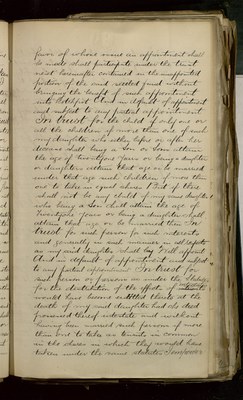 favor of whose issue an appointment shall
be made shall participate under the trust
next hereinafter contained in the unappointed
portion of the said settled fund without
bringing the benefit of such appointment
into Hotchpot And in default of appointment
and subject to any partial appointment
In trust for the child if only one or
all the children if more than one of such
my daughter who either before or after her
decease shall being a Son or Sons attain
the age of twenty four years or being a daughter
or daughters attain that age or be married
under that age such children if more than
one to take in equal shares But if there
shall not be any child of said daughter
who being a Son shall attain the age of
Twenty four years or being a daughter shall
attain that age or be married then In
trust for such person for such interests
and generally in such manner in all respects
as my said daughter shall by Will appoint
And in default of appointment and subject
to any partial appointment In trust for
such person or persons as under the Statutes
for the distribution of the effects of intestates
would have become entitled thereto at the
death of my said daughter had she died
possessed thereof intestate and without
having been married such persons if more
than one to take as tenants in common
in the shares in which they would have
taken under the same statutes I empower